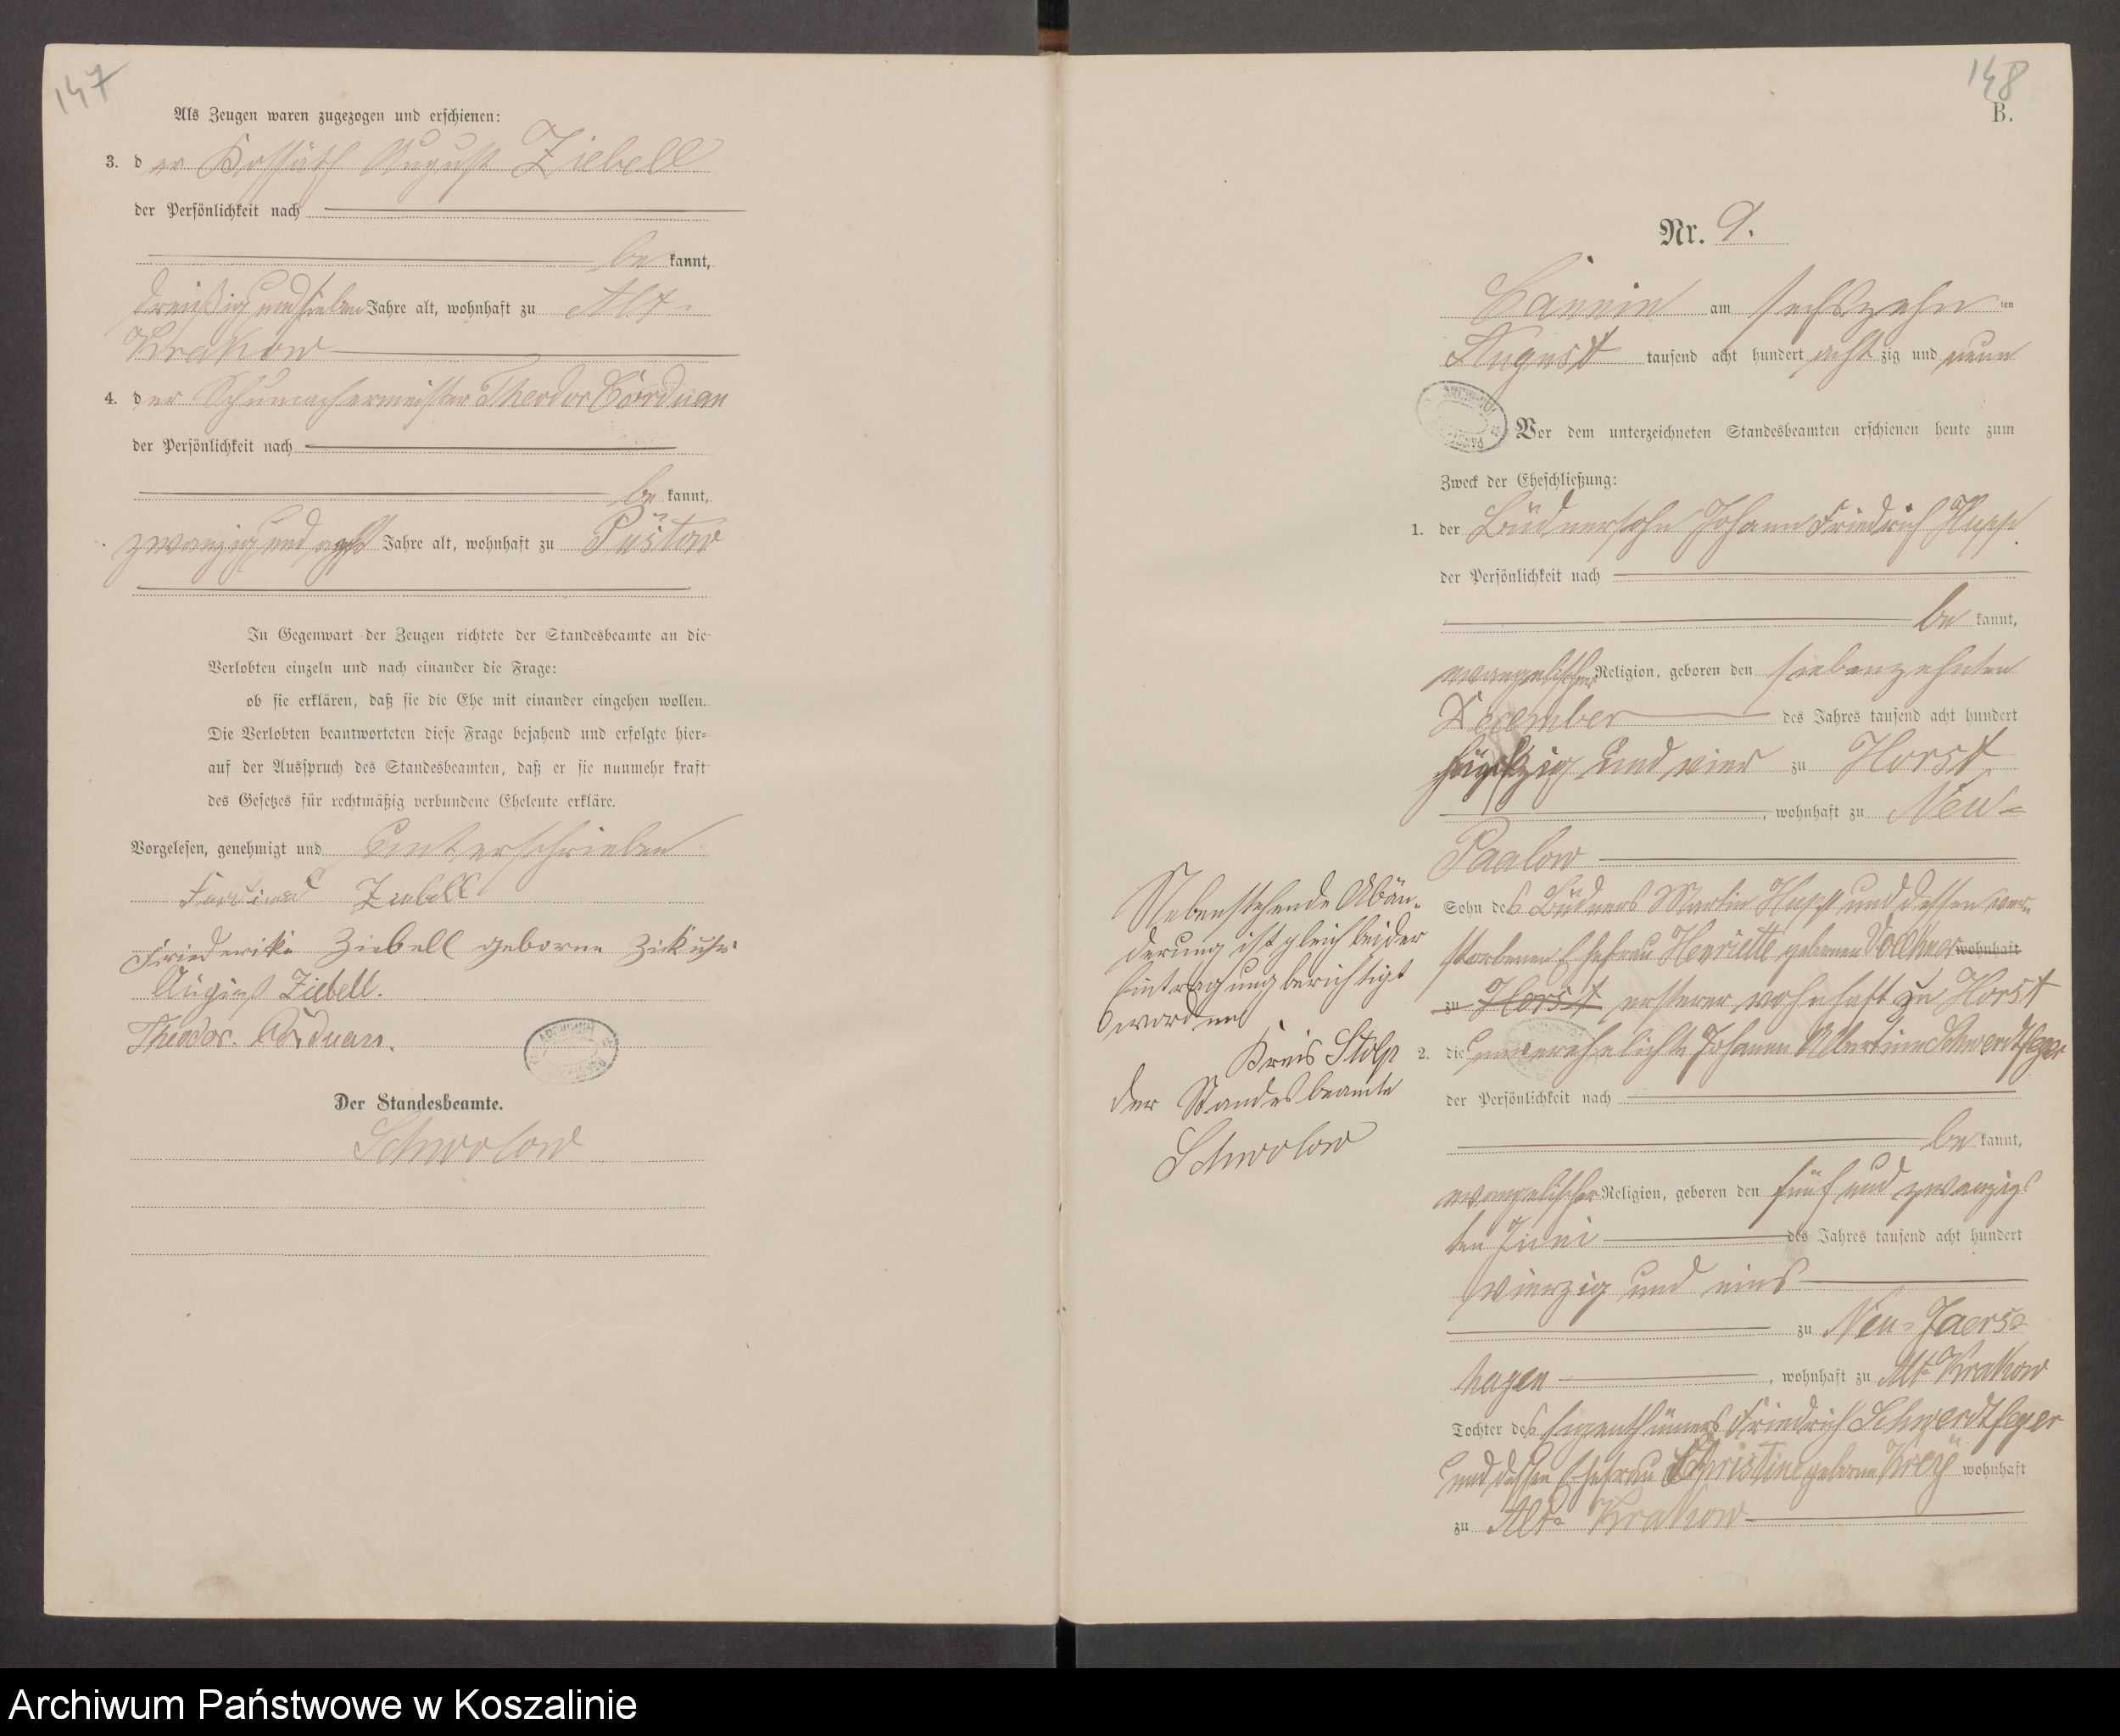 147
Als Zeugen waren zugezogen und erschienen:
3. der Kossäth August Ziebell
der Persönlichkeit nach
be kannt,
dreißig und sieben Jahre alt, wohnhaft zu Alt-
Krakow
4. der Schumachermeister Theodor Corduan
der Persönlichkeit nach
be kannt,
zwanzig und acht Jahre alt, wohnhaft zu Püstow
In Gegenwart der Zeugen richtete der Standesbeamte an die
Verlobten einzeln und nach einander die Frage:
ob sie erklären, daß sie die Ehe mit einander eingehen wollen.
Die Verlobten beantworteten diese Frage bejahend und erfolgte hier-
auf der Ausspruch des Standesbeamten, daß er sie nunmehr kraft
des Gesetzes für rechtmäßig verbundene Eheleute erkläre.
Vorgelesen, genehmigt und unterschrieben
Ziebell
Friederike Ziebell geborne
August Ziebell.
Theodor. Corduan.
Der Standesbeamte.
Schwolow
148
B.
Nr. 9.
Cannin am sechszehn ten
August tausend acht hundert acht zig und neun
Vor dem unterzeichneten Standesbeamten erschienen heute zum
Zweck der Eheschließung:
1. der Büdnersohn Johann Friedrich
der Persönlichkeit nach
be kannt,
evangelischer Religion, geboren den siebenzehnten
December des Jahres tausend acht hundert
und vier zu Horst
, wohnhaft zu Neu-
Paalow
Sohn des Büdners Martin und dessen ver-
storbenen Ehefrau Henriette gebornen wohnhaft
zu Horst ersterer wohnhaft zu Horst
2. die unverehelichte Johanne Albertine Schwerdtfeger
der Persönlichkeit nach
be kannt,
evangelischer Religion, geboren den fünf und zwanzigs
ten Juni des Jahres tausend acht hundert
vierzig und eins
zu Neu-Jaers-
hagen , wohnhaft zu Alt-Krakow
Tochter des Eigenthümers Friedrich Schwerdtfeger
und dessen Ehefrau Christine geborne Krey wohnhaft
zu Alt-Krakow
Nebenstehende Abän-
derung ist gleich bei der
Eintragung berichtigt
worden
Kreis Stolp
der Standesbeamte
Schwolow
Archiwum Państwowe w Koszalinie